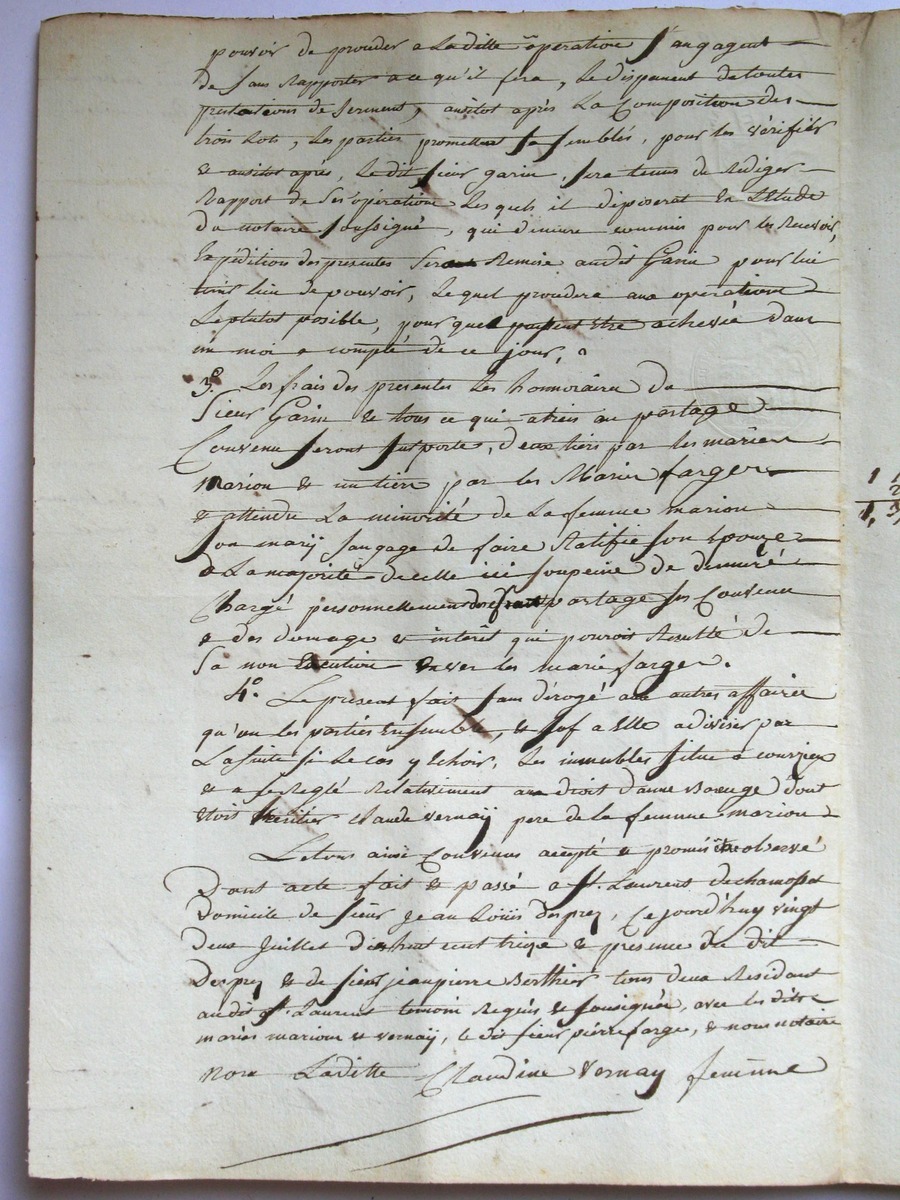 pouvoir de proceder a Laditte operation S'angagent
de S'ans Rapporter a ce qu'il fera, Le dispensent de toutes
prestations de serment, ausitot après La Composition des
trois Lots, Les parties promettent Sa Semblés, pour les vérifiér
& ausitot aprés, Le dit Sieur garin, Sera tenus de Rediger
Rapport de Ses opération Les quels il déposerat En L'Etude
du notaire Soussigné, qui demeure commis pour les Recevoir,
Expédition des presentes Sera Remise audit Garin pour lui
tenir lieu de pouvoir, Le quel procedera aux operations
Le plutot posible, pour quel puissent Etre achevée dans
un moi a compté de ce jour,
3º. Les frais des presentes Les honnoraires du
Sieur Garin & tous ce qui atrais au partage
Convenu Seront Suporté, deux tiers par les mariés
Marion & un tiers par les Mariés farger
& attendu La minorité de La femme marion
Son marij S'angage de faire Ratifié Son Epouze
a La majorité de celle ici soupeine de demuré
Chargé personnellement des frais partage Sus Convenu
& des domage & interêt qui pouroit Resulté de
Sa non Execution Enver les marié farger.
4º. Le present fait Sans dérogé aux autres affaires
qu'on les partiés Ensemble, & Sof a Elle a diviser par
La Suite Si Le cas y Echoir, Les immeubles Situé a courzieu
& a se Reglé Relativiment au droit d'anne Bazuge dont
Etoit heritier Claude Vernaÿ pere de la femme marion
Letous ainsi Convenus accepté & promis être observé
Dont acte fait & passé a St. Laurent de chamosset
Domicile de Sieur Jean Loüis Desprez, Cejourd'huy vingt
deux Juillet dixhuit cent treize & presence du dit
Desprez & de Sieur jeanpierre Berthier tous deux Residant
audit St. Laurent temoin Requis & Sousignés, avec les dits
mariés marion & Vernaÿ, le dit Sieur piérre farger, & nous notaire
non Laditte Claudine Vernay femme
1 1
2
1, 3